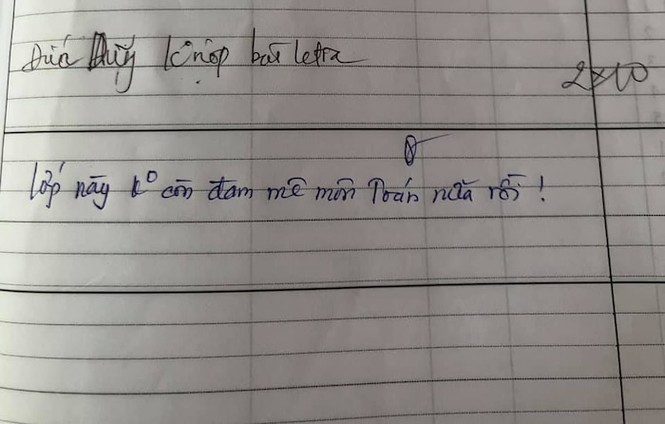 Đức Duy k nộp bài ktra
2x10
Lớp này k⁰ còn đam mê môn Toán nữa rồi!